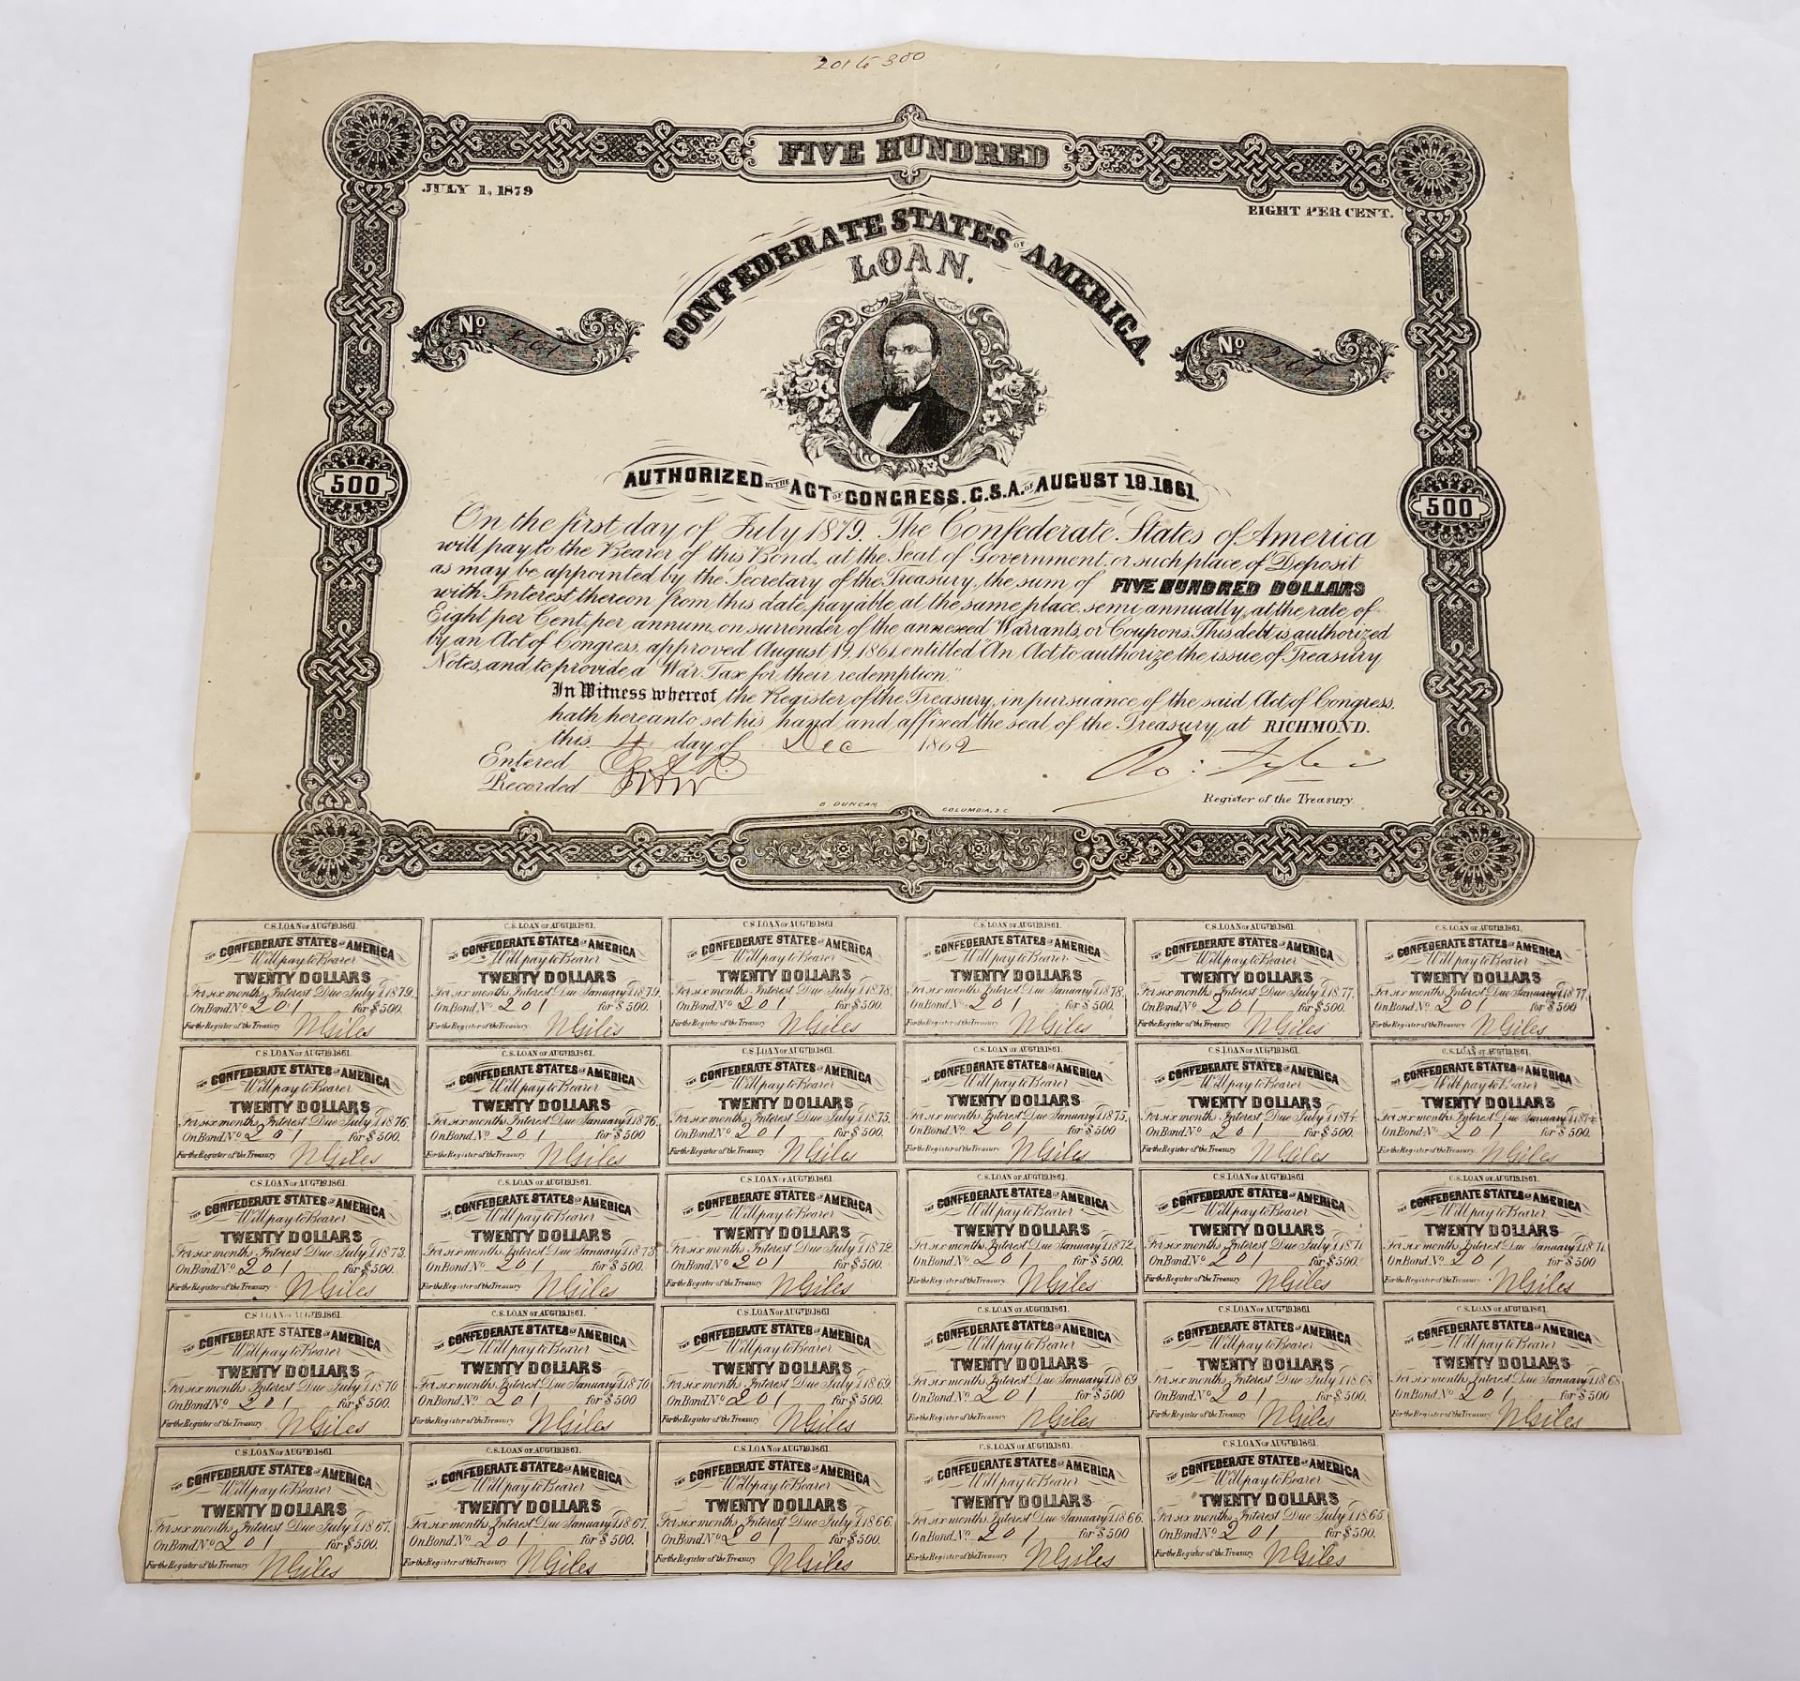 201 to 300
FIVE HUNDRED
JULY 1, 1879
EIGHT PER CENT.
CONFEDERATE STATES OF AMERICA.
LOAN.
No 201
No 201
AUTHORIZED BY THE ACT OF CONGRESS. C.S.A. OF AUGUST 19.1861.
500
500
On the first day of July 1879. The Confederate States of America
will pay to the Bearer of this Bond, at the Seat of Government or such place of Deposit
as may be appointed by the Secretary of the Treasury, the sum of FIVE HUNDRED DOLLARS
with Interest thereon from this date, payable at the same place, semi annually, at the rate of
Eight per Cent, per annum, on surrender of the annexed Warrants, or Coupons. This debt is authorized
by an Act of Congress, approved August 19, 1861, entitled "An Act, to authorize the issue of Treasury
Notes, and to provide a War Tax for their redemption."
In Witness whereof the Register of the Treasury, in pursuance of the said Act of Congress,
hath hereunto set his hand, and affixed the seal of the Treasury, at RICHMOND.
this 11 day of Dec 1862
Entered
Recorded
Ro: Tyler
Register of the Treasury.
B DUNCAN COLUMBIA, S.C.
C.S. LOAN OF AUGT 19.1861.
THE CONFEDERATE STATES OF AMERICA
Will pay to Bearer
TWENTY DOLLARS
For six months Interest Due July 1 1879.
On Bond No 201 for $500.
For the Register of the Treasury N Giles
C.S. LOAN OF AUGT 19.1861.
THE CONFEDERATE STATES OF AMERICA
Will pay to Bearer
TWENTY DOLLARS
For six months Interest Due January 1 1879.
On Bond No 201 for $500.
For the Register of the Treasury N Giles
C.S. LOAN OF AUGT 19.1861.
THE CONFEDERATE STATES OF AMERICA
Will pay to Bearer
TWENTY DOLLARS
For six months Interest Due July 1 1878.
On Bond No 201 for $500.
For the Register of the Treasury N Giles
C.S. LOAN OF AUGT 19.1861.
THE CONFEDERATE STATES OF AMERICA
Will pay to Bearer
TWENTY DOLLARS
For six months Interest Due January 1 1878.
On Bond No 201 for $500.
For the Register of the Treasury N Giles
C.S. LOAN OF AUGT 19.1861.
THE CONFEDERATE STATES OF AMERICA
Will pay to Bearer
TWENTY DOLLARS
For six months Interest Due July 1 1877.
On Bond No 201 for $500.
For the Register of the Treasury N Giles
C.S. LOAN OF AUGT 19.1861.
THE CONFEDERATE STATES OF AMERICA
Will pay to Bearer
TWENTY DOLLARS
For six months Interest Due January 1 1877.
On Bond No 201 for $500
For the Register of the Treasury N Giles
C.S. LOAN OF AUGT 19.1861.
THE CONFEDERATE STATES OF AMERICA
Will pay to Bearer
TWENTY DOLLARS
For six months Interest Due July 1 1876.
On Bond No 201 for $500.
For the Register of the Treasury N Giles
C.S. LOAN OF AUGT 19.1861.
THE CONFEDERATE STATES OF AMERICA
Will pay to Bearer
TWENTY DOLLARS
For six months Interest Due January 1 1876.
On Bond No 201 for $500
For the Register of the Treasury N Giles
C.S. LOAN OF AUGT 19.1861.
THE CONFEDERATE STATES OF AMERICA
Will pay to Bearer
TWENTY DOLLARS
For six months Interest Due July 1 1875.
On Bond No 201 for $500.
For the Register of the Treasury N Giles
C.S. LOAN OF AUGT 19.1861.
THE CONFEDERATE STATES OF AMERICA
Will pay to Bearer
TWENTY DOLLARS
For six months Interest Due January 1 1875.
On Bond No 201 for $500
For the Register of the Treasury N Giles
C.S. LOAN OF AUGT 19.1861.
THE CONFEDERATE STATES OF AMERICA
Will pay to Bearer
TWENTY DOLLARS
For six months Interest Due July 1 1874.
On Bond No 201 for $500.
For the Register of the Treasury N Giles
C.S. LOAN OF AUGT 19.1861.
THE CONFEDERATE STATES OF AMERICA
Will pay to Bearer
TWENTY DOLLARS
For six months Interest Due January 1 1874
On Bond No 201 for $500.
For the Register of the Treasury N Giles
C.S. LOAN OF AUGT 19.1861.
THE CONFEDERATE STATES OF AMERICA
Will pay to Bearer
TWENTY DOLLARS
For six months Interest Due July 1 1873.
On Bond No 201 for $500.
For the Register of the Treasury N Giles
C.S. LOAN OF AUGT 19.1861.
THE CONFEDERATE STATES OF AMERICA
Will pay to Bearer
TWENTY DOLLARS
For six months Interest Due January 1 1873
On Bond No 201 for $500.
For the Register of the Treasury N Giles
C.S. LOAN OF AUGT 19.1861.
THE CONFEDERATE STATES OF AMERICA
Will pay to Bearer
TWENTY DOLLARS
For six months Interest Due July 1 1872.
On Bond No 201 for $500.
For the Register of the Treasury N Giles
C.S. LOAN OF AUGT 19.1861.
THE CONFEDERATE STATES OF AMERICA
Will pay to Bearer
TWENTY DOLLARS
For six months Interest Due January 1 1872.
On Bond No 201 for $500.
For the Register of the Treasury N Giles
C.S. LOAN OF AUGT 19.1861
THE CONFEDERATE STATES OF AMERICA
Will pay to Bearer
TWENTY DOLLARS
For six months Interest Due July 1 1871
On Bond No 201 for $500.
For the Register of the Treasury N Giles
C.S. LOAN OF AUGT 19.1861.
THE CONFEDERATE STATES OF AMERICA
Will pay to Bearer
TWENTY DOLLARS
For six months Interest Due January 1 1871.
On Bond No 201 for $500
For the Register of the Treasury N Giles
C.S. LOAN OF AUGT 19.1861
THE CONFEDERATE STATES OF AMERICA
Will pay to Bearer
TWENTY DOLLARS
For six months Interest Due July 1 1870
On Bond No 201 for $500.
For the Register of the Treasury N Giles
C.S. LOAN OF AUGT 19.1861.
THE CONFEDERATE STATES OF AMERICA
Will pay to Bearer
TWENTY DOLLARS
For six months Interest Due January 1 1870
On Bond No 201 for $500
For the Register of the Treasury N Giles
C.S. LOAN OF AUGT 19.1861
THE CONFEDERATE STATES OF AMERICA
Will pay to Bearer
TWENTY DOLLARS
For six months Interest Due July 1 1869.
On Bond No 201 for $500.
For the Register of the Treasury N Giles
C.S. LOAN OF AUGT 19.1861.
THE CONFEDERATE STATES OF AMERICA
Will pay to Bearer
TWENTY DOLLARS
For six months Interest Due January 1 1869
On Bond No 201 for $500
For the Register of the Treasury N Giles
C.S. LOAN OF AUGT 19.1861
THE CONFEDERATE STATES OF AMERICA
Will pay to Bearer
TWENTY DOLLARS
For six months Interest Due July 1 1868
On Bond No 201 for $500.
For the Register of the Treasury N Giles
C.S. LOAN OF AUGT 19.1861.
THE CONFEDERATE STATES OF AMERICA
Will pay to Bearer
TWENTY DOLLARS
For six months Interest Due January 1 1868
On Bond No 201 for $500
For the Register of the Treasury N Giles
C.S. LOAN OF AUGT 19.1861.
THE CONFEDERATE STATES OF AMERICA
Will pay to Bearer
TWENTY DOLLARS
For six months Interest Due July 1 1867.
On Bond No 201 for $500.
For the Register of the Treasury N Giles
C.S. LOAN OF AUGT 19.1861.
THE CONFEDERATE STATES OF AMERICA
Will pay to Bearer
TWENTY DOLLARS
For six months Interest Due January 1 1867.
On Bond No 201 for $500.
For the Register of the Treasury N Giles
C.S. LOAN OF AUGT 19.1861.
THE CONFEDERATE STATES OF AMERICA
Will pay to Bearer
TWENTY DOLLARS
For six months Interest Due July 1 1866.
On Bond No 201 for $500.
For the Register of the Treasury N Giles
C.S. LOAN OF AUGT 19.1861.
THE CONFEDERATE STATES OF AMERICA
Will pay to Bearer
TWENTY DOLLARS
For six months Interest Due January 1 1866.
On Bond No 201 for $500
For the Register of the Treasury N Giles
C.S. LOAN OF AUGT 19.1861.
THE CONFEDERATE STATES OF AMERICA
Will pay to Bearer
TWENTY DOLLARS
For six months Interest Due July 1 1865
On Bond No 201 for $500.
For the Register of the Treasury N Giles